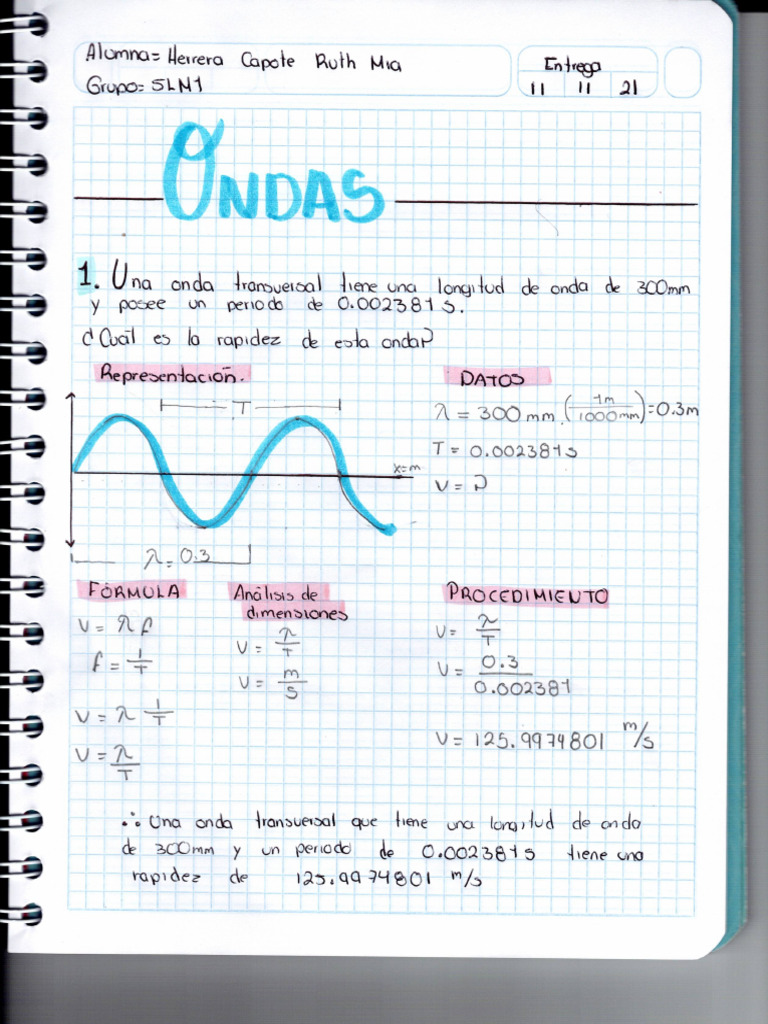 Alumna= Herrera Capote Ruth Mia
Grupo= 5LN1
Entrega
11 11 21
ONDAS
1. Una onda transversal tiene una longitud de onda de 300mm
y posee un periodo de 0.002381s.
¿Cuál es la rapidez de esta onda?
Representación.
T
x=m
λ= 0.3
DATOS
λ = 300 mm. (1m/1000mm)=0.3m
T = 0.002381s
V = ?
FÓRMULA
V = λ f
f = 1/T
V = λ 1/T
V = λ/T
Análisis de
dimensiones
V = λ/T
V = m/s
PROCEDIMIENTO
V= λ/T
V= 0.3/0.002381
V= 125.9974801 m/s
∴ Una onda transversal que tiene una longitud de onda
de 300mm y un periodo de 0.002381s tiene una
rapidez de 125.9974801 m/s